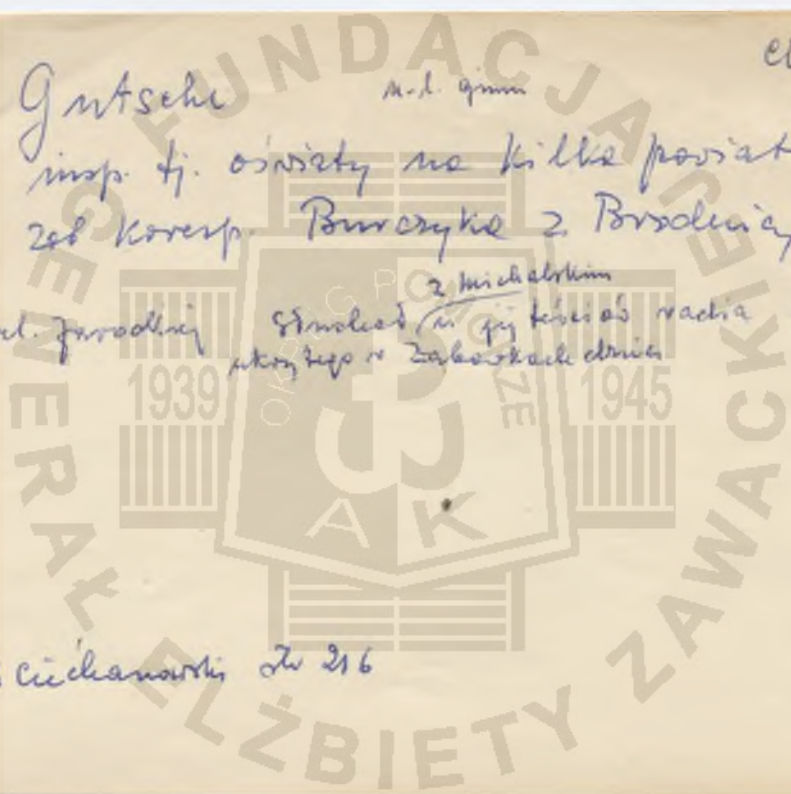 Gutsche n-l. gimn
insp. tj. oświaty na kilka powiat
zob koresp. Burczyka z Brodnicy
z Michalskim
słuchał u jej teściów radia
ukrytego w zabawkach
Ciechanowski str 216
FUNDACJA GENERAŁ ELŻBIETY ZAWACKIEJ
OKRĘG POMORZE
1939 1945
AK